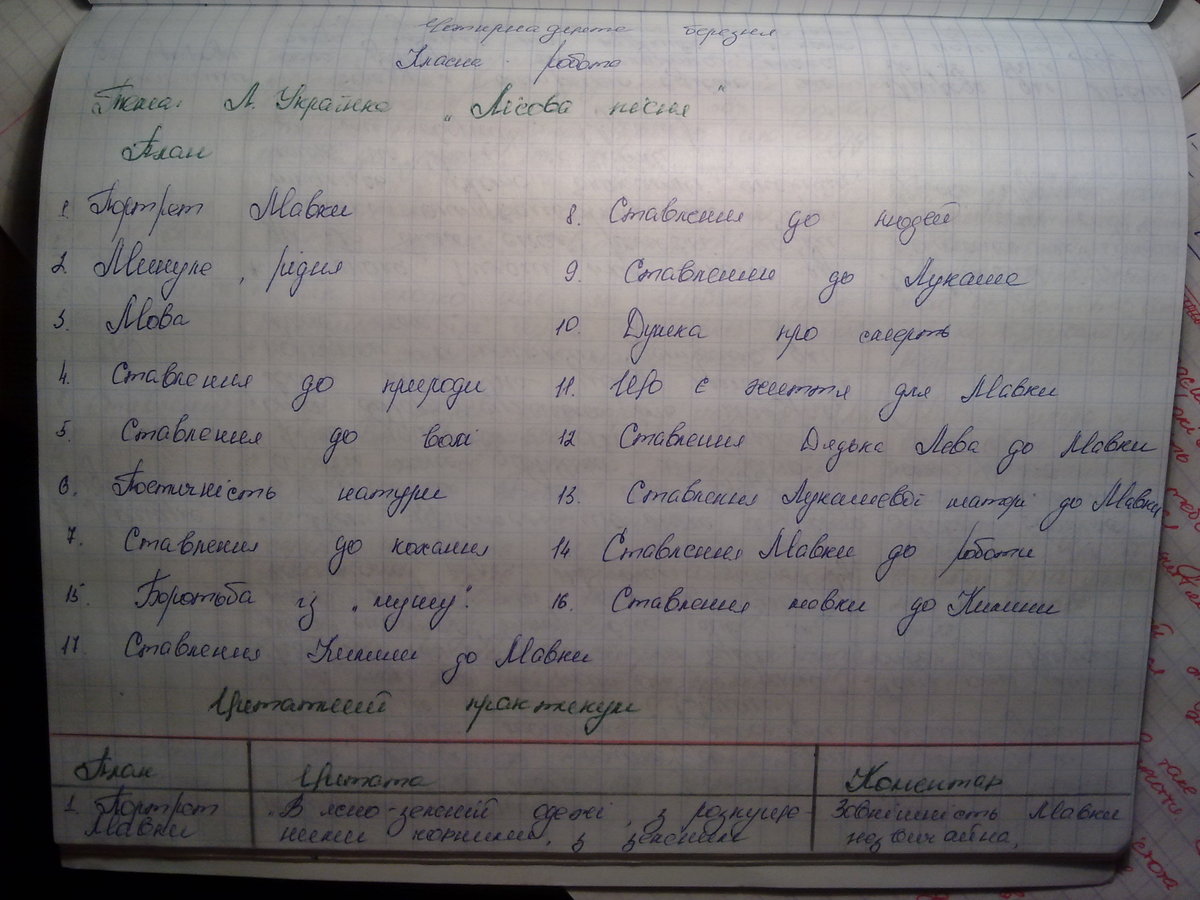 Чотирнадцяте березня
Класна робота
Тема: Л. Українка „Лісова пісня"
План
1. Портрет Мавки
2. Минуле, рідня
3. Мова
4. Ставлення до природи
5. Ставлення до волі
6. Поетичність натури
7. Ставлення до кохання
8. Ставлення до людей
9. Ставлення до Лукаша
10. Думка про смерть
11. Що є життя для Мавки
12 Ставлення Дядька Лева до Мавки
13. Ставлення Лукашевої матері до Мавки
14 Ставлення Мавки до роботи
15. Боротьба із „тишу".
16. Ставлення мавки до Килини
17. Ставлення Килини до Мавки
Цитатний практикум
План Цитата Коментар
1. Портрет Мавки
„В ясно-зеленій одежі, з розпуще-
ними чорними, з зеленим
Зовнішність Мавки
незвичайна,